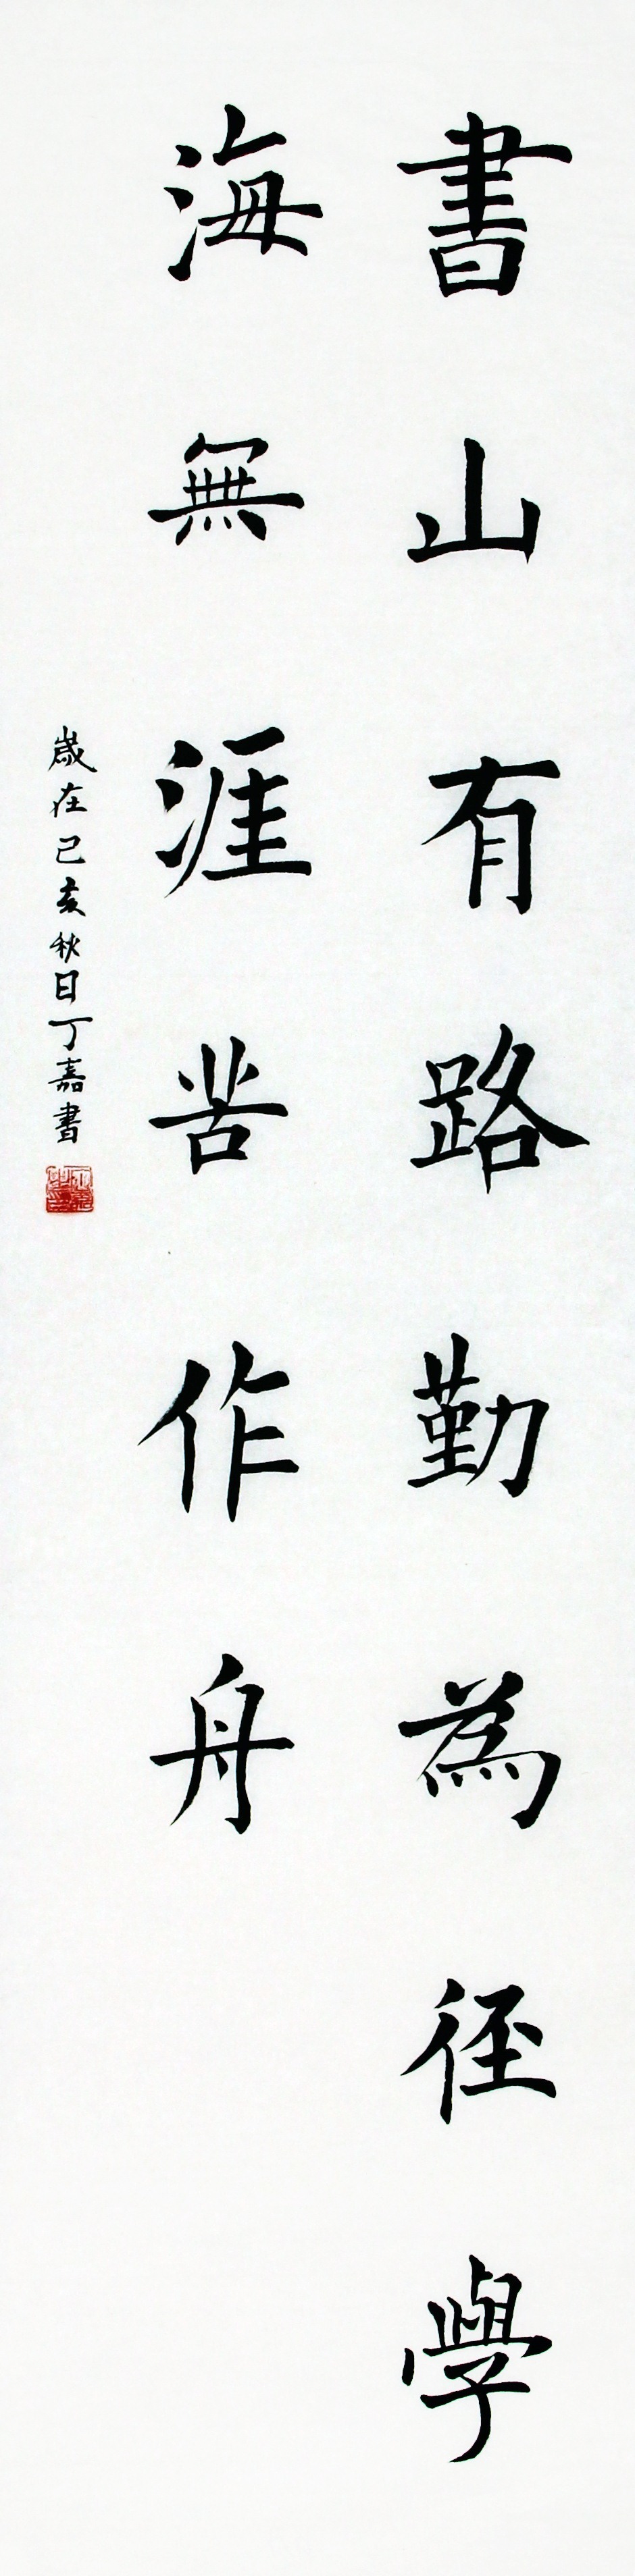 書山有路勤為徑學
海無涯苦作舟
歲在己亥秋日丁嘉書